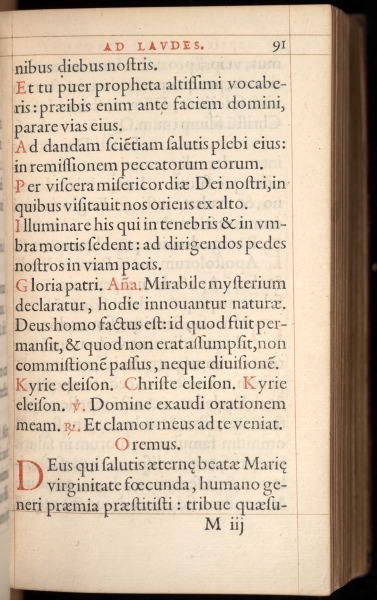 AD LAVDES. 91
nibus diebus nostris.
Et tu puer propheta altissimi vocabe-
ris: præibis enim ante faciem domini,
parare vias eius.
Ad dandam sciētiam salutis plebi eius:
in remissionem peccatorum eorum.
Per viscera misericordiæ Dei nostri, in
quibus visitauit nos oriens ex alto.
Illuminare his qui in tenebris & in vm-
bra mortis sedent: ad dirigendos pedes
nostros in viam pacis.
Gloria patri. Aña. Mirabile mysterium
declaratur, hodie innouantur naturæ.
Deus homo factus est: id quod fuit per-
mansit, & quod non erat assumpsit, non
commistionē passus, neque diuisionē.
Kyrie eleison. Christe eleison. Kyrie
eleison. ℣. Domine exaudi orationem
meam. ℟. Et clamor meus ad te veniat.
Oremus.
DEus qui salutis æternę beatæ Marię
virginitate fœcunda, humano ge-
neri præmia præstitisti: tribue quæsu-
M iij